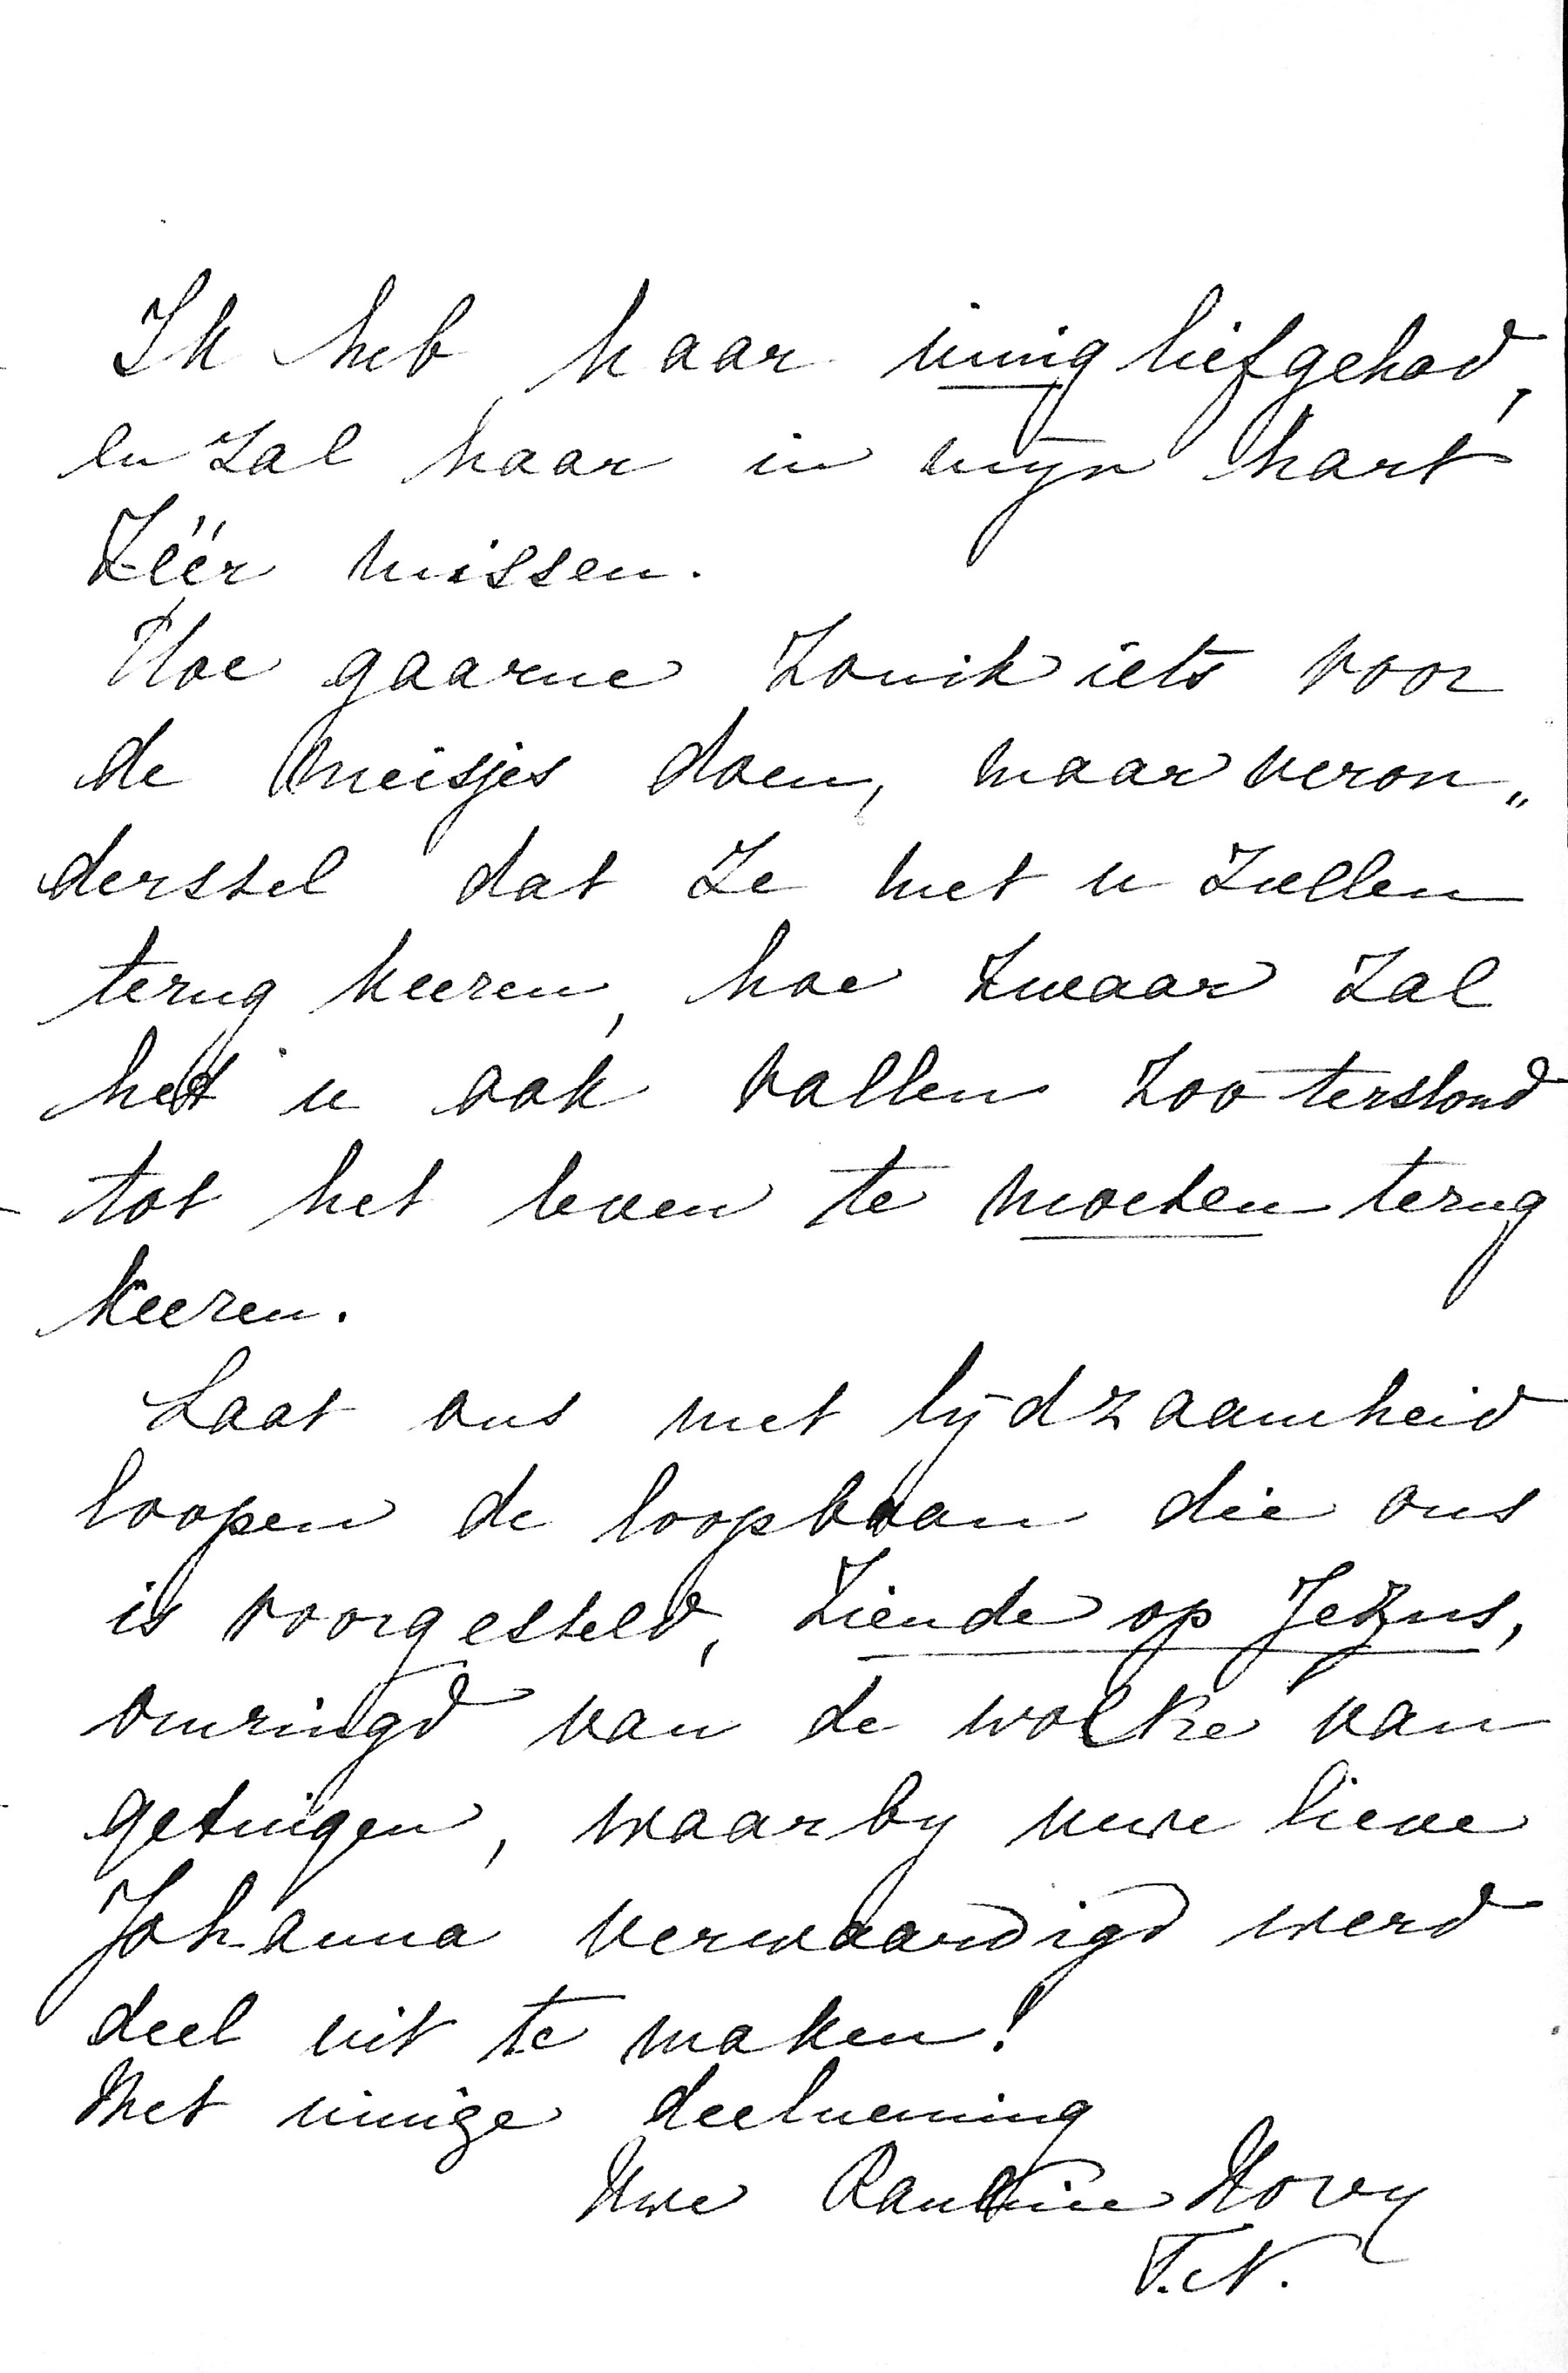 Ik heb haar innig liefgehad,
en zal haar in mijn hart
zéér missen.
Hoe gaarne zou ik iets voor
de meisjes doen, maar veron„
derstel dat ze met u zullen
terug keeren, hoe zwaar zal
het u ook vallen zoo terstond
tot het leven te moeten terug
keeren.
Laat ons met lijdzaamheid
loopen de loopbaan die ons
is voorgesteld, ziende op Jezus,
omringd van de wolke van
getuigen, waarby uwe lieve
Johanna verwaardigd werd
deel uit te maken!
Met innige deelneming
Uwe Pauline
T.N.